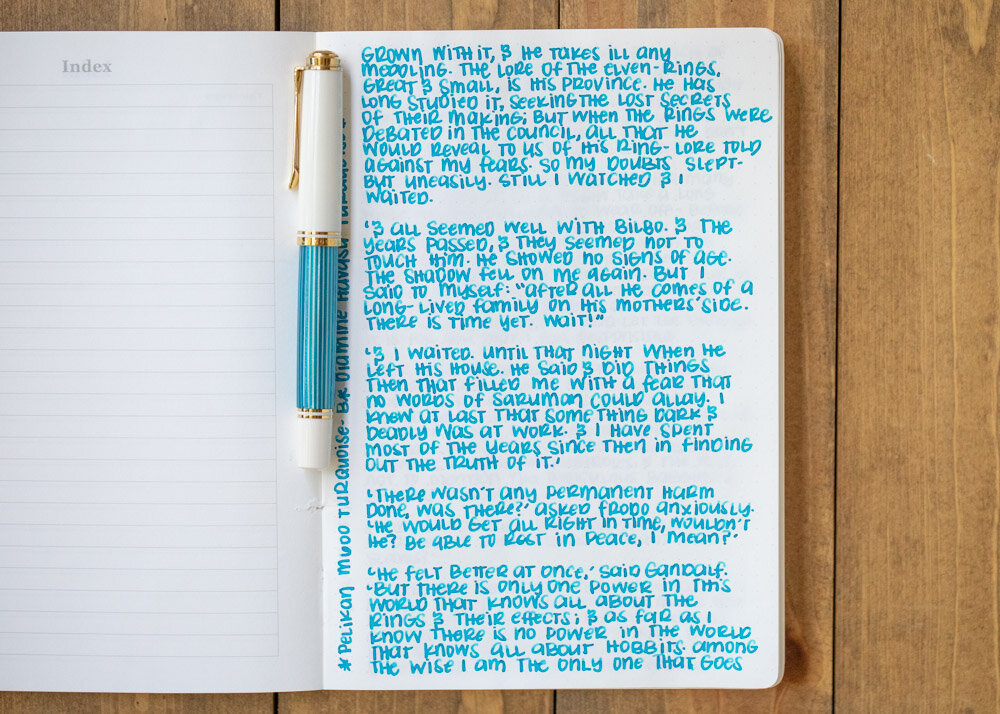 Index
GROWN WITH IT, & HE TAKES ILL ANY
MEDDLING. THE LORE OF THE ELVEN-RINGS,
GREAT & SMALL, IS HIS PROVINCE. HE HAS
LONG STUDIED IT, SEEKING THE LOST SECRETS
OF THEIR MAKING; BUT WHEN THE RINGS WERE
DEBATED IN THE COUNCIL, ALL THAT HE
WOULD REVEAL TO US OF HIS RING-LORE TOLD
AGAINST MY FEARS. SO MY DOUBTS SLEPT-
BUT UNEASILY. STILL I WATCHED & I
WAITED.
'& ALL SEEMED WELL WITH BILBO. & THE
YEARS PASSED, & THEY SEEMED NOT TO
TOUCH HIM. HE SHOWED NO SIGNS OF AGE.
THE SHADOW FELL ON ME AGAIN. BUT I
SAID TO MYSELF: "AFTER ALL HE COMES OF A
LONG-LIVED FAMILY ON HIS MOTHERS' SIDE.
THERE IS TIME YET. WAIT!"
'& I WAITED. UNTIL THAT NIGHT WHEN HE
LEFT HIS HOUSE. HE SAID & DID THINGS
THEN THAT FILLED ME WITH A FEAR THAT
NO WORDS OF SARUMAN COULD ALLAY. I
KNEW AT LAST THAT SOMETHING DARK &
DEADLY WAS AT WORK. & I HAVE SPENT
MOST OF THE YEARS SINCE THEN IN FINDING
OUT THE TRUTH OF IT.'
'THERE WASN'T ANY PERMANENT HARM
DONE, WAS THERE?' ASKED FRODO ANXIOUSLY.
'HE WOULD GET ALL RIGHT IN TIME, WOULDN'T
HE? BE ABLE TO REST IN PEACE, I MEAN?'
'HE FELT BETTER AT ONCE,' SAID GANDALF.
'BUT THERE IS ONLY ONE POWER IN THIS
WORLD THAT KNOWS ALL ABOUT THE
RINGS & THEIR EFFECTS; & AS FAR AS I
KNOW THERE IS NO POWER IN THE WORLD
THAT KNOWS ALL ABOUT HOBBITS. AMONG
THE WISE I AM THE ONLY ONE THAT GOES
* PELIKAN M600 TURQUOISE- DIAMINE HAVASU TURQUOISE